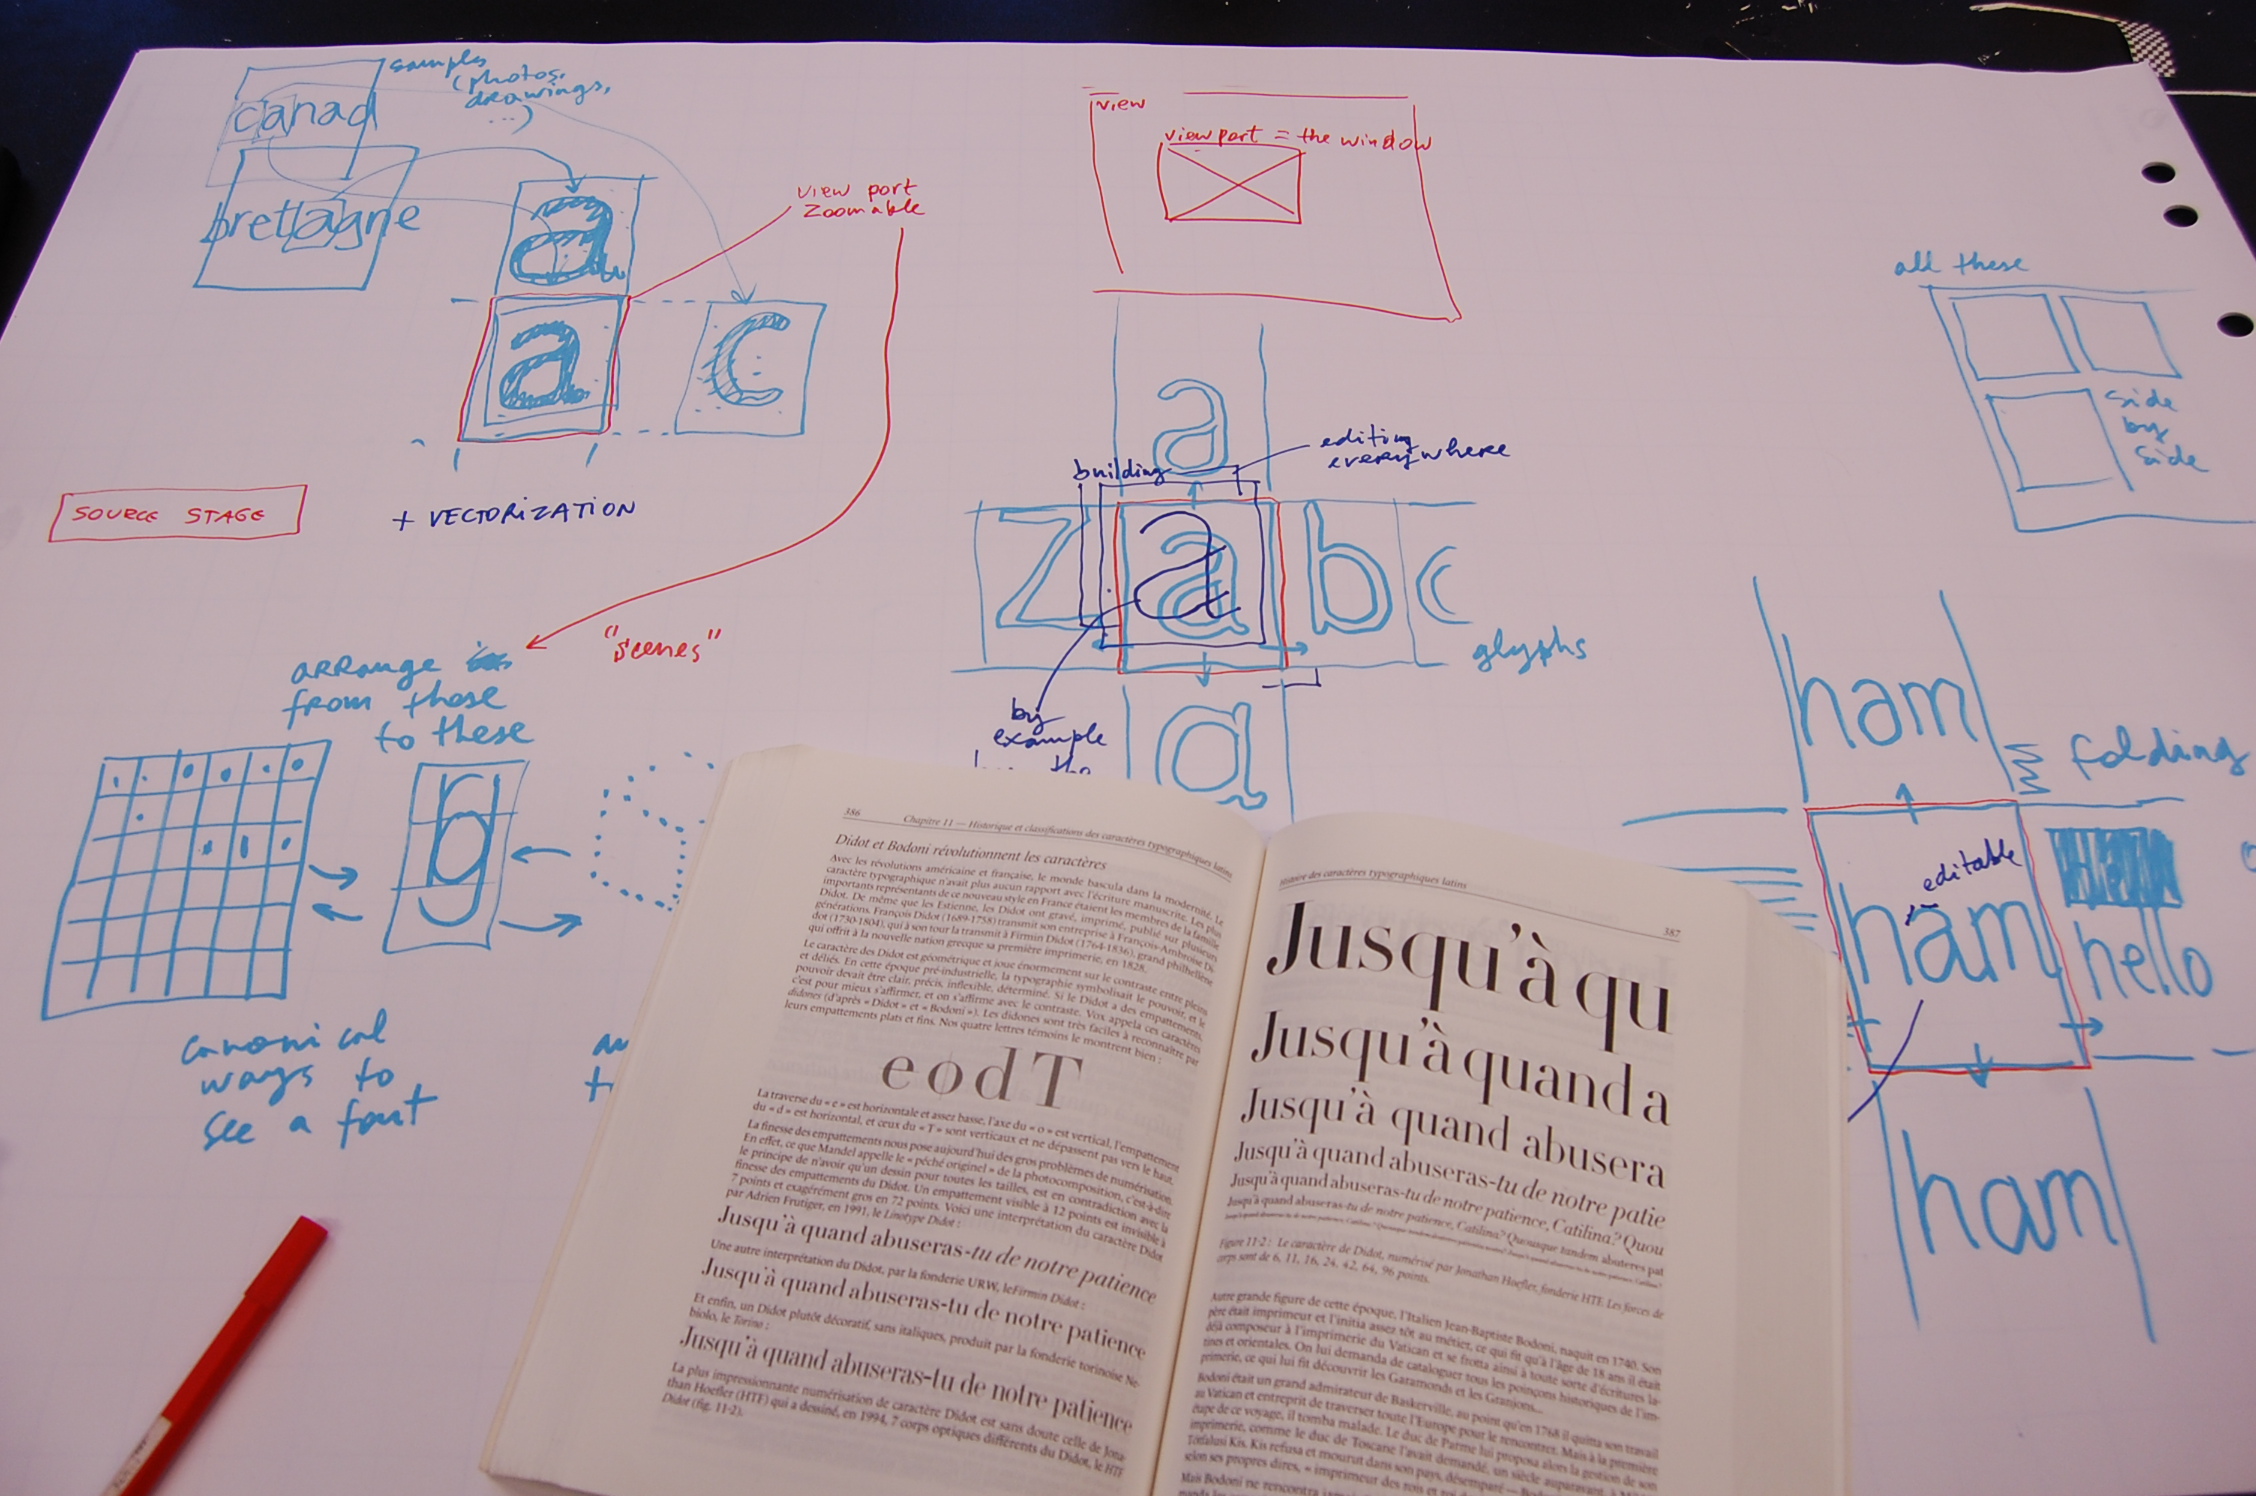 samples
(photos,
drawings,
...)
canad
bretagne
a
a
c
view port
zoomable
view
viewport = the window
all these
side
by
side
SOURCE STAGE
+ VECTORIZATION
"scenes"
a
building
editing
everywhere
z a b c
glyphs
by
example
a
arrange
from these
to these
g
canonical
ways to
see a font
ham
folding
editable
ham
hello
ham
386
Chapitre 11 — Historique et classifications des caractères typographiques latins
Didot et Bodoni révolutionnent les caractères
Avec les révolutions américaine et française, le monde bascula dans la modernité. Le
caractère typographique n'avait plus aucun rapport avec l'écriture manuscrite. Les plus
importants représentants de ce nouveau style en France étaient les membres de la famille
Didot. De même que les Estienne, les Didot ont gravé, imprimé, publié sur plusieurs
générations. François Didot (1689-1758) transmit son entreprise à François-Ambroise Di-
dot (1730-1804), qui à son tour la transmit à Firmin Didot (1764-1836), grand philhellène
qui offrit à la nouvelle nation grecque sa première imprimerie, en 1828.
Le caractère des Didot est géométrique et joue énormement sur le contraste entre pleins
et déliés. En cette époque pré-industrielle, la typographie symbolisait le pouvoir, et le
pouvoir devait être clair, précis, inflexible, déterminé. Si le Didot a des empattements,
c'est pour mieux s'affirmer, et on s'affirme avec le contraste. Vox appela ces caractères
didones (d'après « Didot » et « Bodoni »). Les didones sont très faciles à reconnaître par
leurs empattements plats et fins. Nos quatre lettres témoins le montrent bien :
e o d T
La traverse du « e » est horizontale et assez basse, l'axe du « o » est vertical, l'empattement
du « d » est horizontal, et ceux du « T » sont verticaux et ne dépassent pas vers le haut.
La finesse des empattements nous pose aujourd'hui des gros problèmes de numérisation.
En effet, ce que Mandel appelle le « péché originel » de la photocomposition, c'est-à-dire
le principe de n'avoir qu'un dessin pour toutes les tailles, est en contradiction avec la
finesse des empattements du Didot. Un empattement visible à 12 points est invisible à
7 points et exagérément gros en 72 points. Voici une interprétation du caractère Didot
par Adrien Frutiger, en 1991, le Linotype Didot :
Jusqu'à quand abuseras-tu de notre patience
Une autre interprétation du Didot, par la fonderie URW, leFirmin Didot :
Jusqu'à quand abuseras-tu de notre patience
Et enfin, un Didot plutôt décoratif, sans italiques, produit par la fonderie torinoise Ne-
biolo, le Torino :
Jusqu'à quand abuseras-tu de notre patience
La plus impressionnante numérisation de caractère Didot est sans doute celle de Jona-
than Hoefler (HTF) qui a dessiné, en 1994, 7 corps optiques différents du Didot, le HTF
Didot (fig. 11-2).
Histoire des caractères typographiques latins
387
Jusqu'à qu
Jusqu'à quand a
Jusqu'à quand abusera
Jusqu'à quand abuseras-tu de notre patie
Jusqu'à quand abuseras-tu de notre patience, Catilina? Quou
Jusqu'à quand abuseras-tu de notre patience, Catilina? Quousque tandem abuteres pat
Figure 11-2 : Le caractère de Didot, numérisé par Jonathan Hoefler, fonderie HTF. Les forces de
corps sont de 6, 11, 16, 24, 42, 64, 96 points.
Autre grande figure de cette époque, l'Italien Jean-Baptiste Bodoni, naquit en 1740. Son
père était imprimeur et l'initia assez tôt au métier, ce qui fit qu'à l'âge de 18 ans il était
déjà compositeur à l'imprimerie du Vatican et se frotta ainsi à toute sorte d'écritures la-
tines et orientales. On lui demanda de cataloguer tous les poinçons historiques de l'im-
primerie, ce qui lui fit découvrir les Garamonds et les Granjons...
Bodoni était un grand admirateur de Baskerville, au point qu'en 1768 il quitta son travail
au Vatican et entreprit de traverser toute l'Europe pour le rencontrer. Mais à la première
étape de ce voyage, il tomba malade. Le duc de Parme lui proposa alors la gestion de son
imprimerie, comme le duc de Toscane l'avait demandé, un siècle auparavant, à
Tótfalusi Kis. Kis refusa et mourut dans son pays, désemparé — Bodoni
selon ses propres dires, « imprimeur des rois et roi des
Mais Bodoni ne rencontra